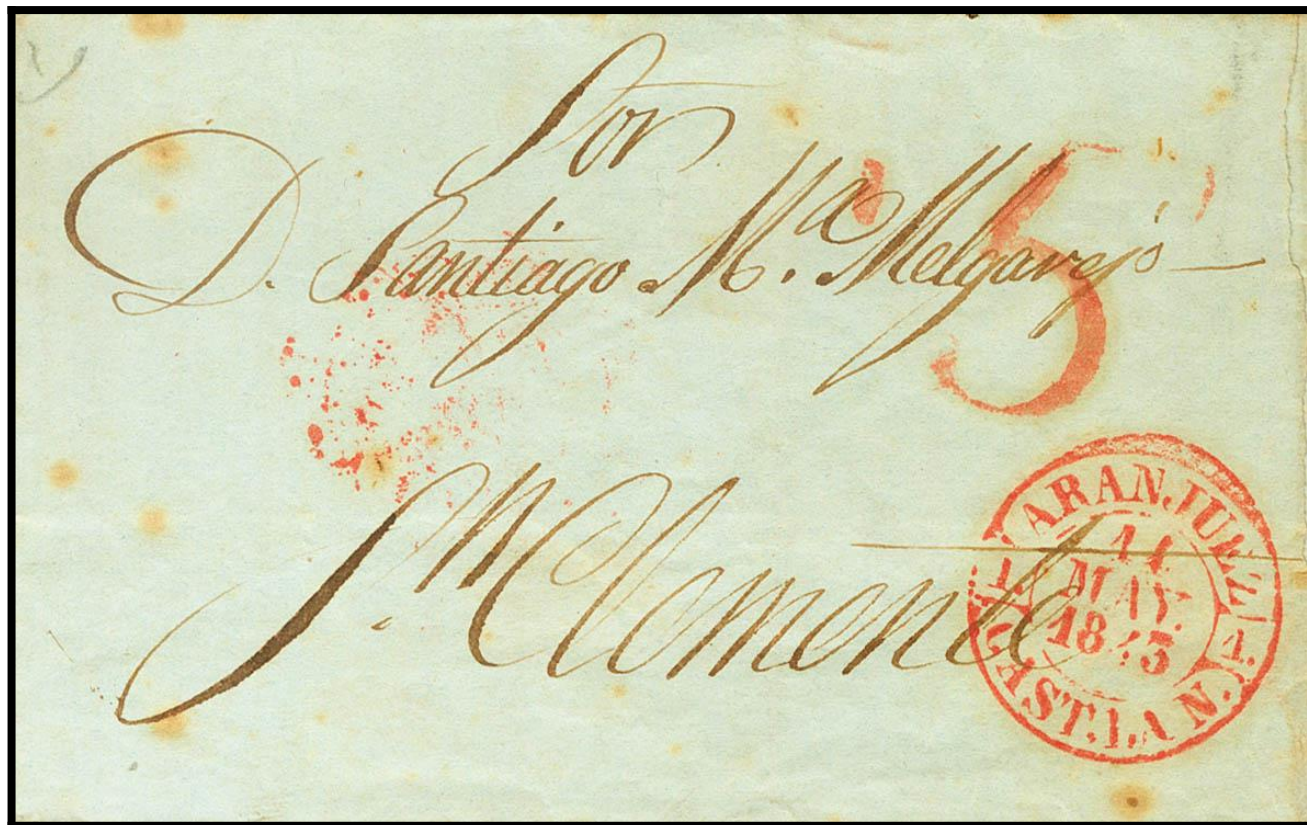 Sor
D. Santiago Mª. Melgarejo
5
Sn. Clemente
ARANJUEZ
MAY.
CAST. LA N.